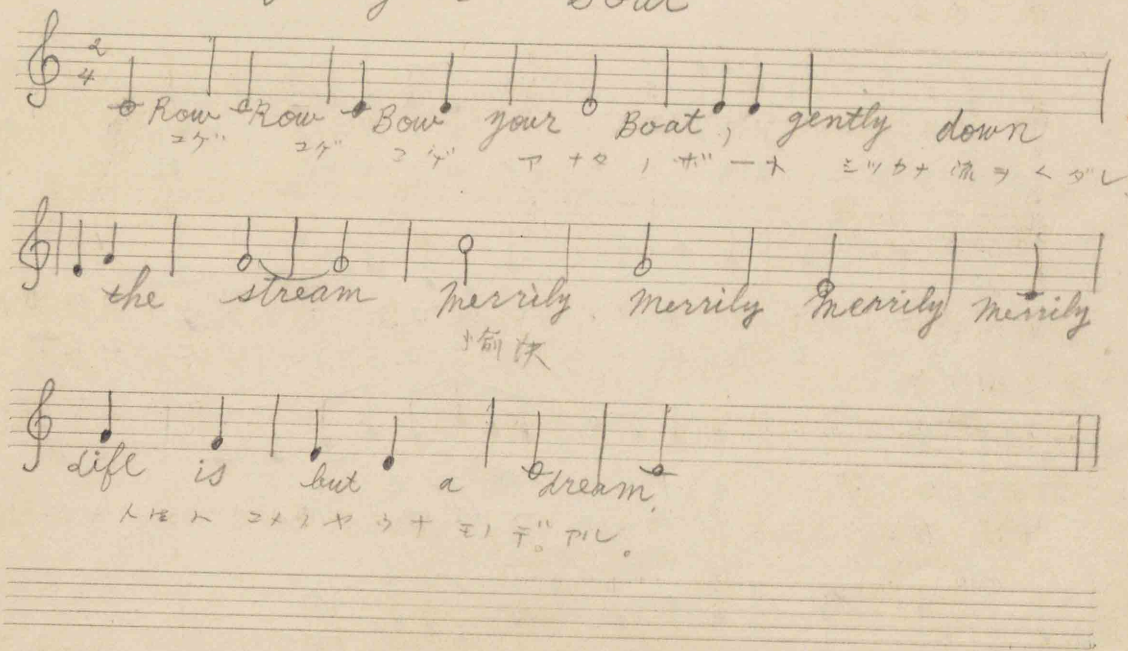 Boat
2
4
Row Row Bow your Boat, gently down
コゲ コゲ コゲ アナタノボート シツカナ流ヲクダレ
the stream Merrily Merrily Merrily Merrily
愉快
Life is but a dream.
人生ハ ユメノヤウナ モノデアル。